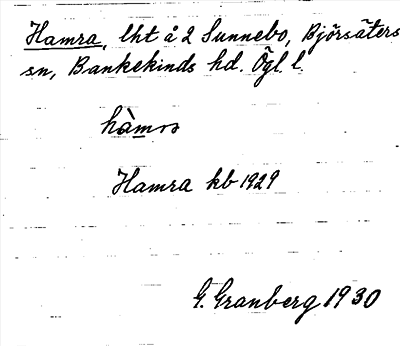 Hamra, lht å 2 Sunnebo, Björsäters
sn, Bankekinds hd. Ögl. l.
hàmra
Hamra kb 1929
G. Granberg 1930